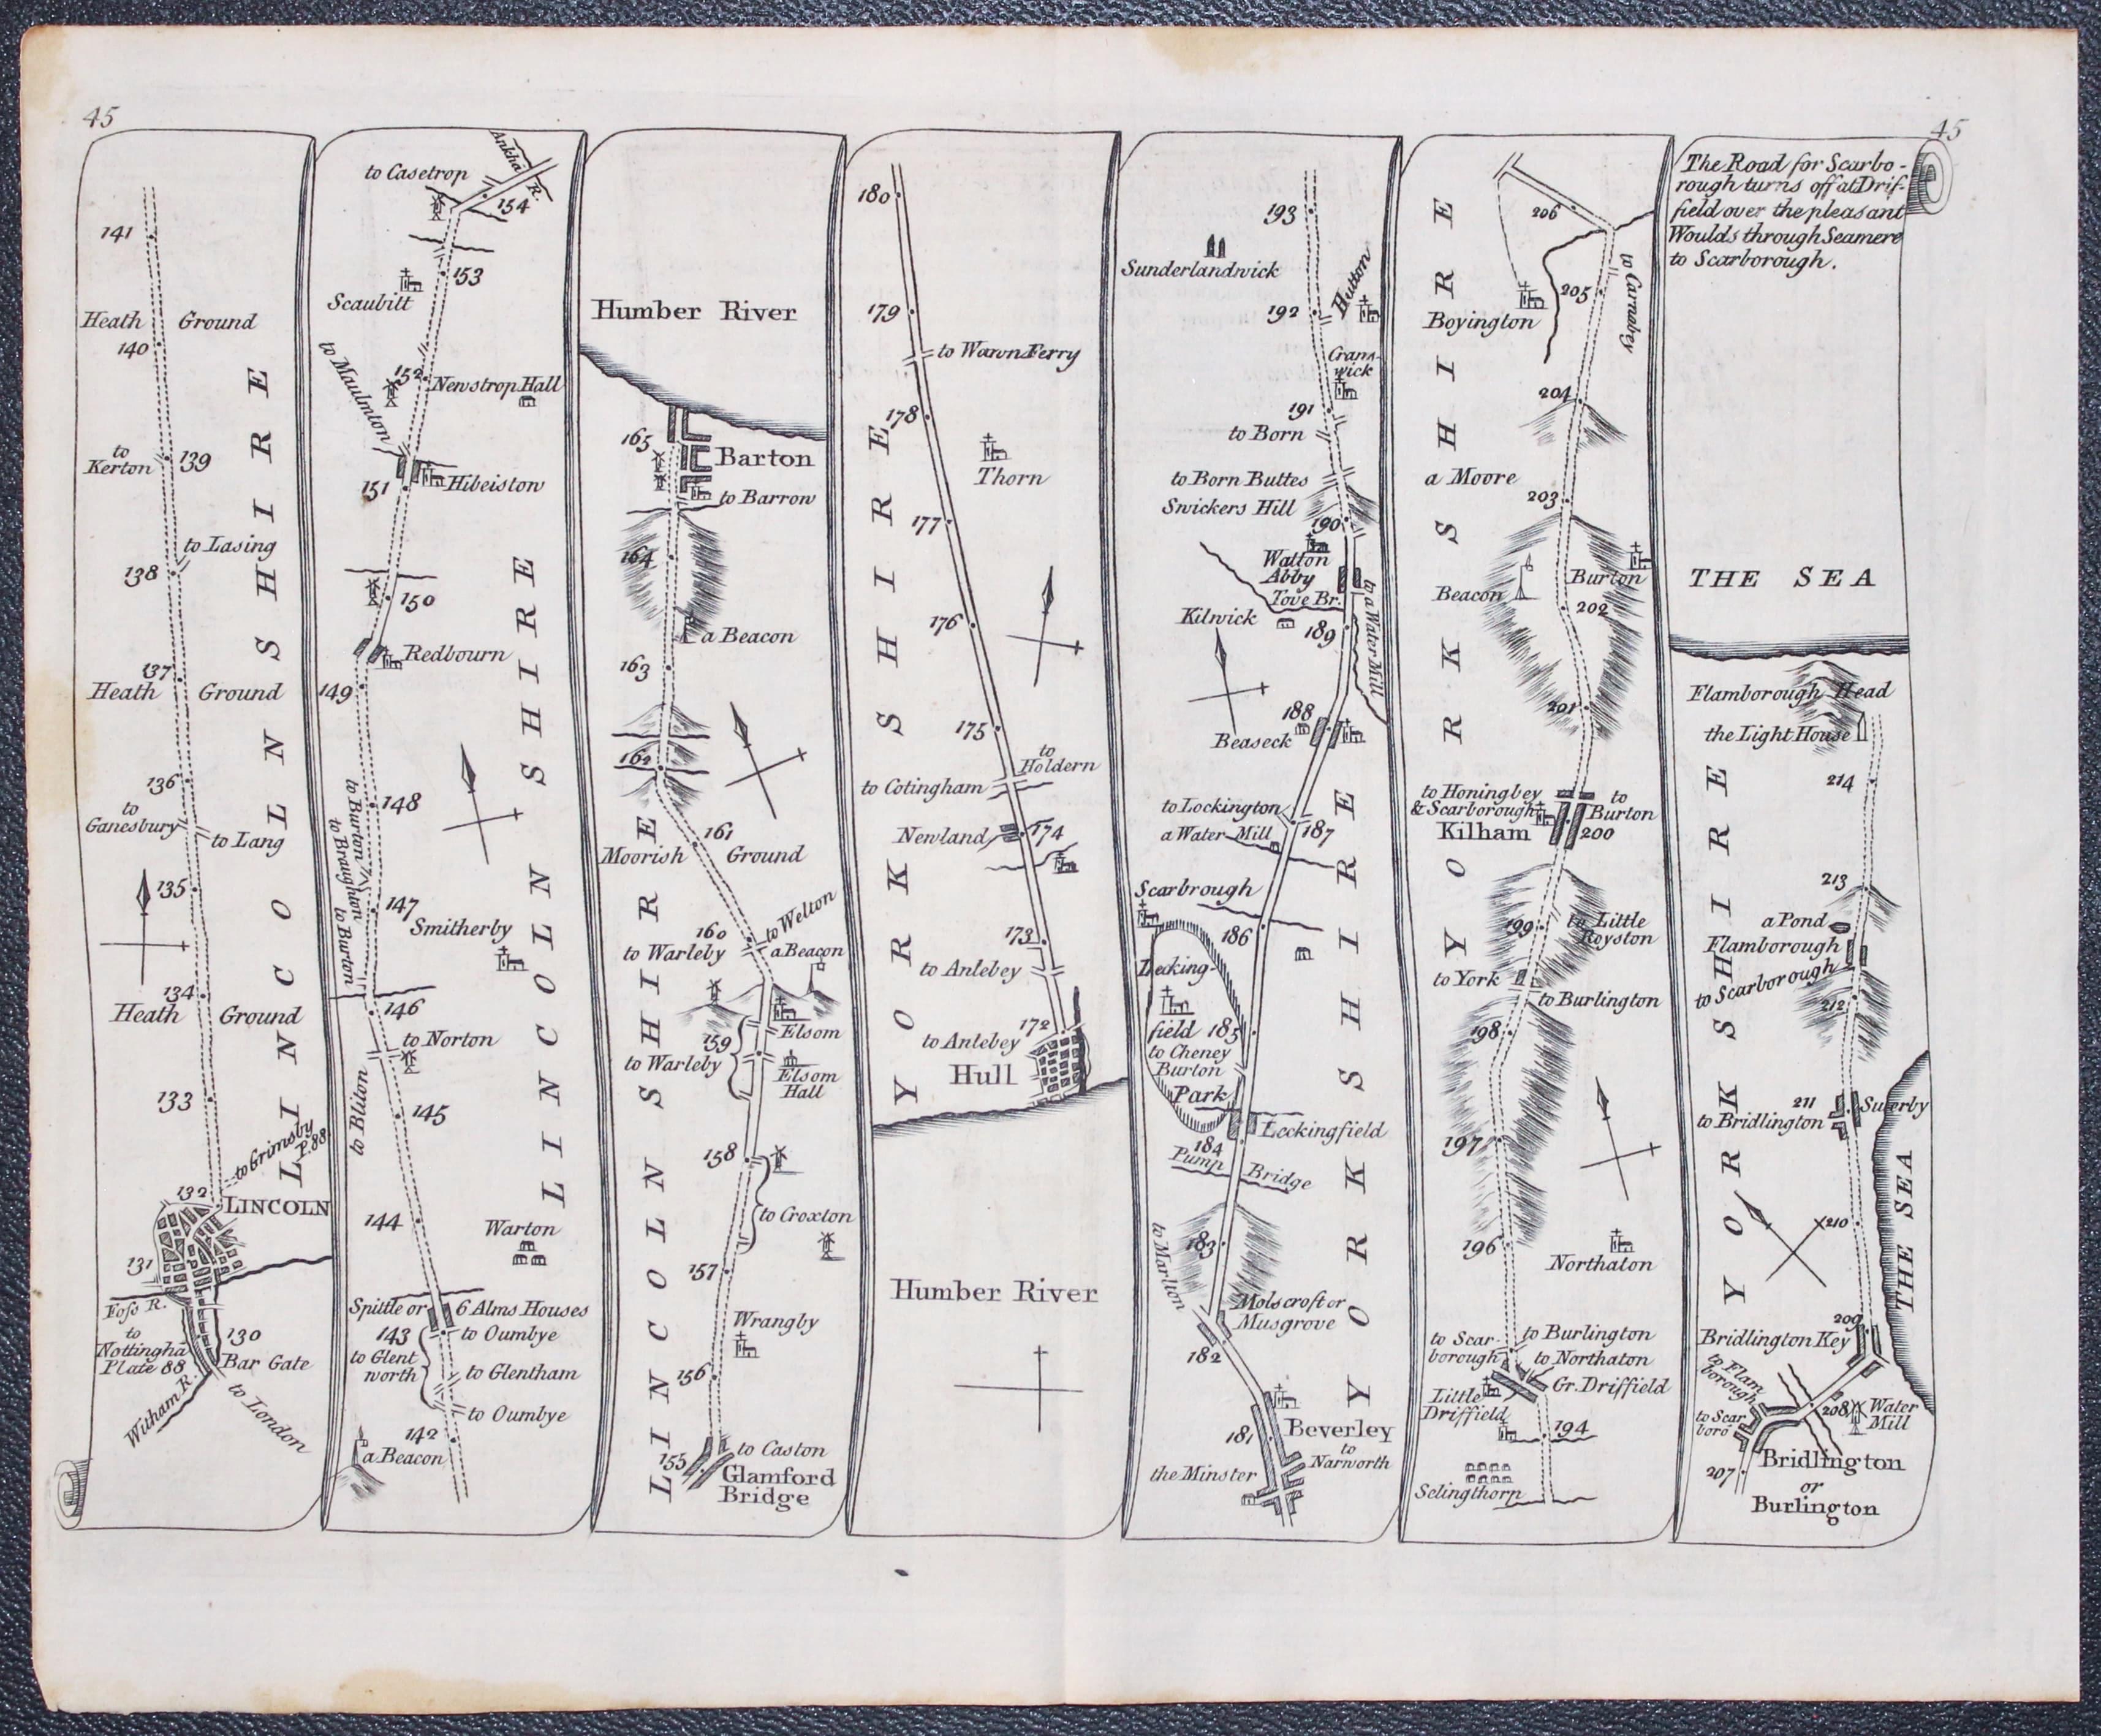 45
45
141
Heath Ground
140
to
Kerton
139
to Lasing
138
137
Heath Ground
136
to
Ganesbury
to Lang
135
134
Heath Ground
133
to Grimsby
P. 88
132
LINCOLN
131
Foss R.
to
Nottinghā
Plate 88
130
Bar Gate
Witham R.
to London
LINCOLNSHIRE
Ankhā R.
to Casetrop
154
153
Scaubitt
to Maulmton
152
Newstrop Hall
151
Hibeiston
150
Redbourn
149
148
to Burton
to Braughton
to Burton
147
Smitherby
146
to Norton
to Bliton
145
144
Warton
Spittle or 6 Alms Houses
143
to Oumbye
to Glent
worth
to Glentham
to Oumbye
142
a Beacon
LINCOLNSHIRE
Humber River
165
Barton
to Barrow
164
a Beacon
163
162
161
Moorish Ground
to Welton
160
to Warleby
a Beacon
Elsom
159
to Warleby
Elsom
Hall
158
to Croxton
157
Wrangby
156
to Caston
155
Glamford
Bridge
LINCOLNSHIRE
180
179
to Wawns Ferry
178
Thorn
177
176
175
to
Holdern
to Cotingham
Newland
174
173
to Anlebey
172
to Anlebey
Hull
Humber River
YORKSHIRE
193
Sunderlandwick
Hutton
192
Crans
wick
191
to Born
to Born Buttes
Swickers Hill
190
Watton
Abby
Tove Br.
to a Water Mill
Kilwick
189
188
Beaseck
to Lockington
187
a Water Mill
Scarbrough
186
Lecking
field
185
to Cheney
Burton
Park
Leckingfield
184
Pump Bridge
to Marlton
183
Molscroft or
Musgrove
182
181
Beverley
to
Narworth
the Minster
YORKSHIRE
206
to Carnabey
205
Boyington
204
a Moore
203
Beacon
Burton
202
201
to Honingbey
& Scarborough
to
Burton
Kilham
200
199
to Little
Royston
to York
to Burlington
198
197
196
Northaton
to Scar-
borough
to Burlington
to Northaton
Gr. Driffield
Little
Driffield
194
Selingthorp
YORKSHIRE
The Road for Scarbo-
rough turns off at Drif-
field over the pleasant
Woulds through Seamere
to Scarborough.
THE SEA
Flamborough Head
the Light House
214
213
a Pond
Flamborough
to Scarborough
212
211
to Bridlington
Suerby
THE SEA
210
209
Bridlington Key
to Flam
borough
to Scar
boro'
208
Water
Mill
207
Bridlington
or
Burlington
YORKSHIRE